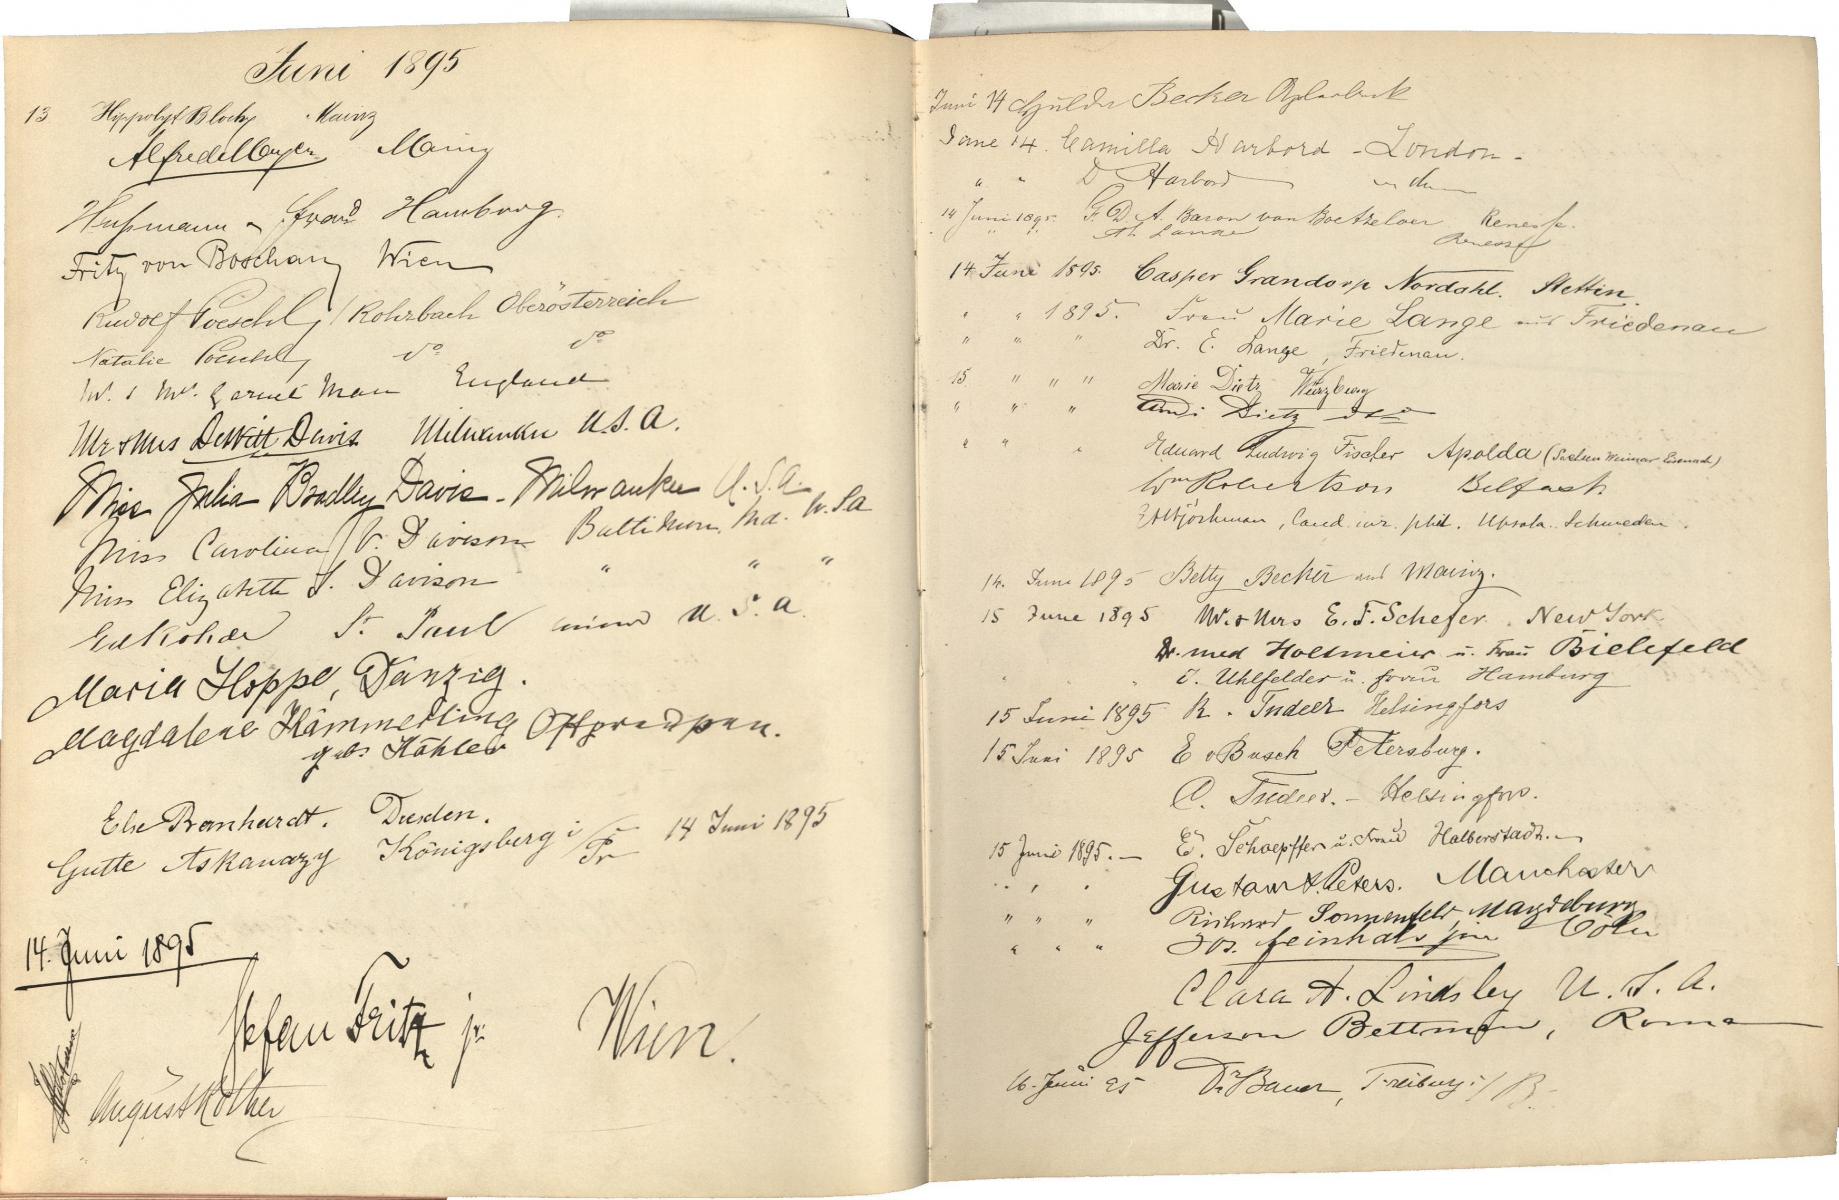 Juni 1895
13 Hippolyt Bloch, Mainz
Alfred Mayer Mainz
Hußmann u Frau Hamburg
Fritz von Boschan Wien
Rudolf Poeschl / Rohrbach Oberösterreich
Natalie Poeschl do do
Mr. & Mrs. Man England
Mr & Mrs DeWitt Davis Milwaukee U.S.A.
Miss Julia Bradley Davis - Milwaukee U.S.A.
Miss Carolina V. Davison Baltimore, Md. U.S.A
Miss Elizabeth S. Davison " " "
St. Paul Minn U.S.A.
Maria Hoppe, Danzig.
Magdalene Hämmerling Ostpreußen.
geb. Kähler
Else Bernhardt. Dresden.
Gutte Askanazy Königsberg i/Pr 14 Juni 1895
14. Juni 1895
Stefan Fritz jr. Wien.
August Rother
Juni 14 Hulda Becker
June 14. Camilla Harbord - London -
" " D Harbord
14 Juni 1895. F. D. A. Baron van Boetzelaer Renesse.
" " Renesse
14. Juni 1895. Casper Grandorp Nordahl. Stettin.
" " 1895. Frau Marie Lange aus Friedenau
" " " Dr. E. Lange, Friedenau.
15 " " " Marie Dietz Würzburg
" " " Dietz dto
" " " Eduard Ludwig Fischer Apolda (Sachsen Weimar Eisenach)
Wm Robertson Belfast
Cand. phil. Upsala. Schweden.
14. Juni 1895 Betty Becker aus Mainz.
15 June 1895 Mr. & Mrs E. F. Schefer. New York.
Dr. med Holtmeier u. Frau Bielefeld
" " J. Uhlfelder u. Frau Hamburg
15 Juni 1895 R. Tudeer Helsingfors
15. Juni 1895 E v Busch Petersburg.
O. Tudeer. - Helsingfors.
15 Juni 1895. - E. Schoepffer u. Frau Halberstadt. -
" " " Gustav A. Peters. Manchester
" " " Richard Sonnenfeld, Magdeburg
" " " Jos. Feinhals jun Cöln
Clara A. Lindsley U. S. A.
Jefferson Bettman, Roma
16. Juni 95 Dr Bauer, Freiburg i/B.